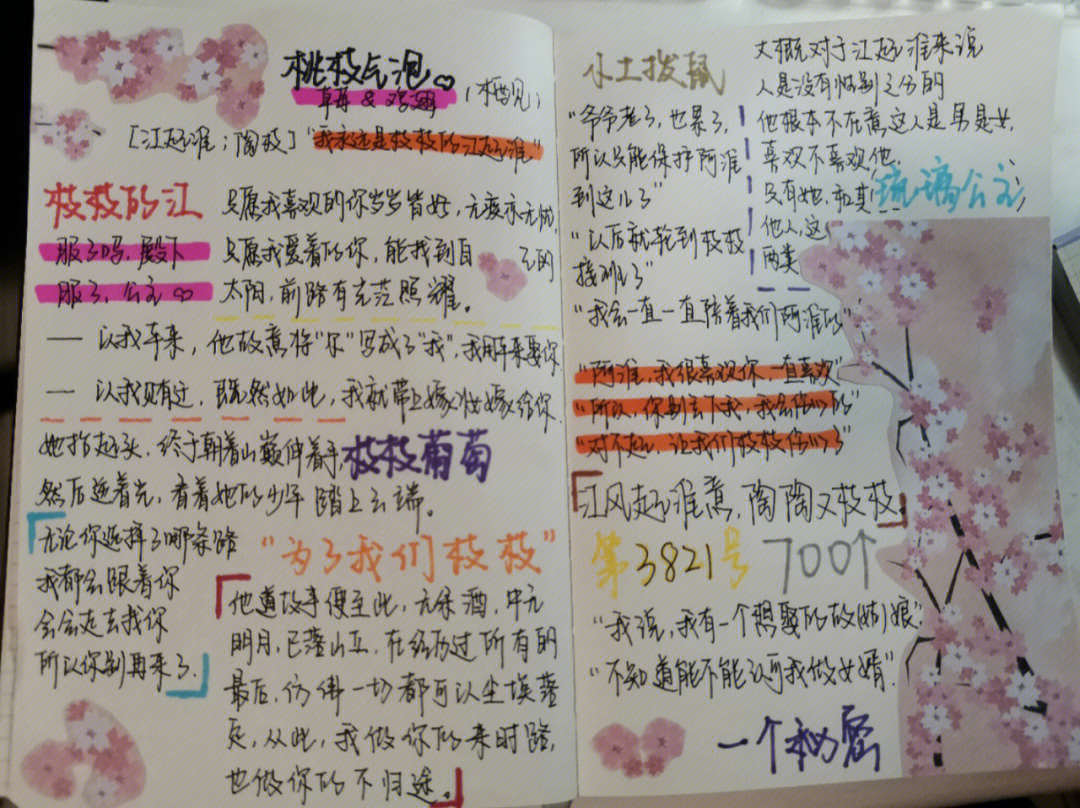 桃枝气泡
草莓 & 鸡翅 (栖见)
[江起淮；陶枝] "我永远是枝枝的江起淮"
枝枝的江
服了吗，殿下
服了，公主
只愿我喜欢的你岁岁皆好，无灾亦无忧，
只愿我爱着的你，能找到自己的
太阳，前路有光芒照耀。
— 以我车来，他故意将"尔"写成了"我"，我用车来娶你
— 以我贿迁，既然如此，我就带上嫁妆嫁给你
她抬起头，终于朝着山巅伸着手，
枝枝葡萄
然后逆着光，看着她的少年踏上云端。
无论你选择了哪条路
我都会跟着你
会走去找你
所以你别再来了
"为了我们枝枝"
他道故事便至此，无余酒，中元
明月，已落山丘，在经历过所有的
最后，仿佛一切都可以尘埃落
定，从此，我做你的来时路，
也做你的不归途。
小土拨鼠
"爷爷老了，也累了，
所以只能保护阿淮
到这儿了"
"以后就轮到枝枝
接班了"
"我会一直一直陪着我们阿淮的"
"阿淮，我很喜欢你，一直喜欢"
"所以，你别丢下我，我会伤心的"
"对不起，让我们枝枝伤心了"
大概对于江起淮来说
人是没有性别之分的
他根本不在意这人是男是女，
喜欢不喜欢他，
只有她，和其
他人，这
两类
琉璃公主
江风起淮意，陶陶又枝枝。
第3821号
700↑
"我说，我有一个想娶的故(姑)娘"
"不知道能不能认可我做女婿"
一个秘密